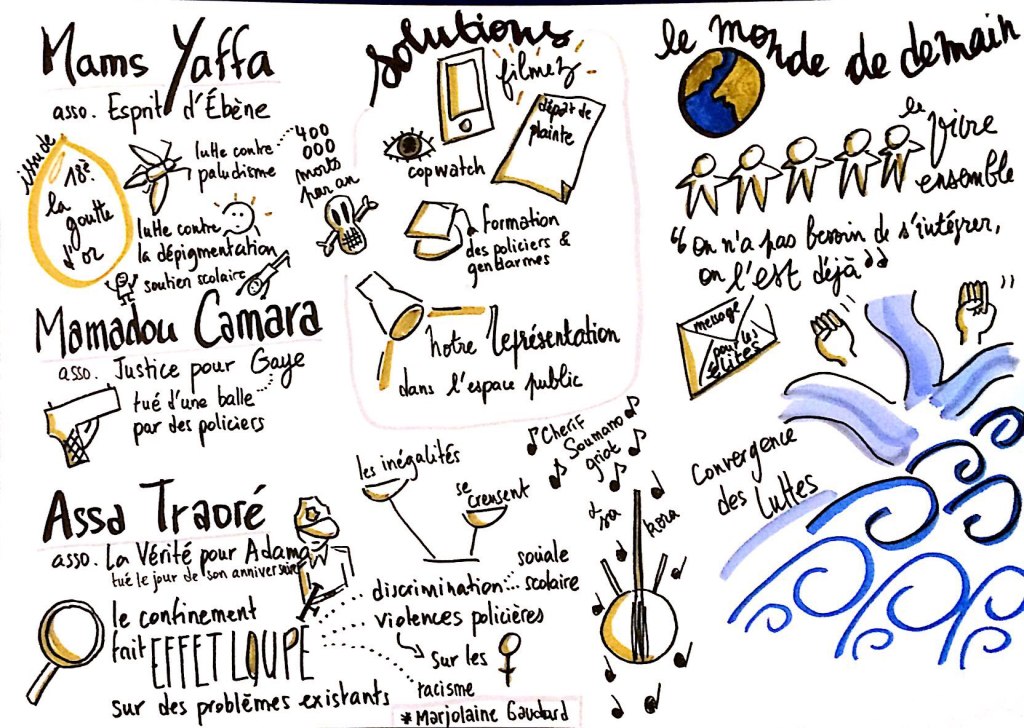 Mams Yaffa
asso. Esprit d'Ébène
issu de
18e
la
goutte
d'or
lutte contre
paludisme
400
000
morts
par an
lutte contre
la dépigmentation
soutien scolaire
Mamadou Camara
asso. Justice pour Gaye
tué d'une balle
par des policiers
Assa Traoré
asso. La Vérité pour Adama
tué le jour de son anniversaire
le confinement
fait EFFET LOUPE
sur des problèmes existants
solutions
filmez
dépôt de
plainte
copwatch
formation
des policiers &
gendarmes
notre représentation
dans l'espace public
les inégalités
se
creusent
discrimination
sociale
scolaire
violences policières
sur les
racisme
*Marjolaine Gaudard
Cherif
Soumano
griot
& sa
kora
le monde de demain
le
vivre
ensemble
"on n'a pas besoin de s'intégrer,
on l'est déjà"
message
pour les
élites
Convergence
des luttes